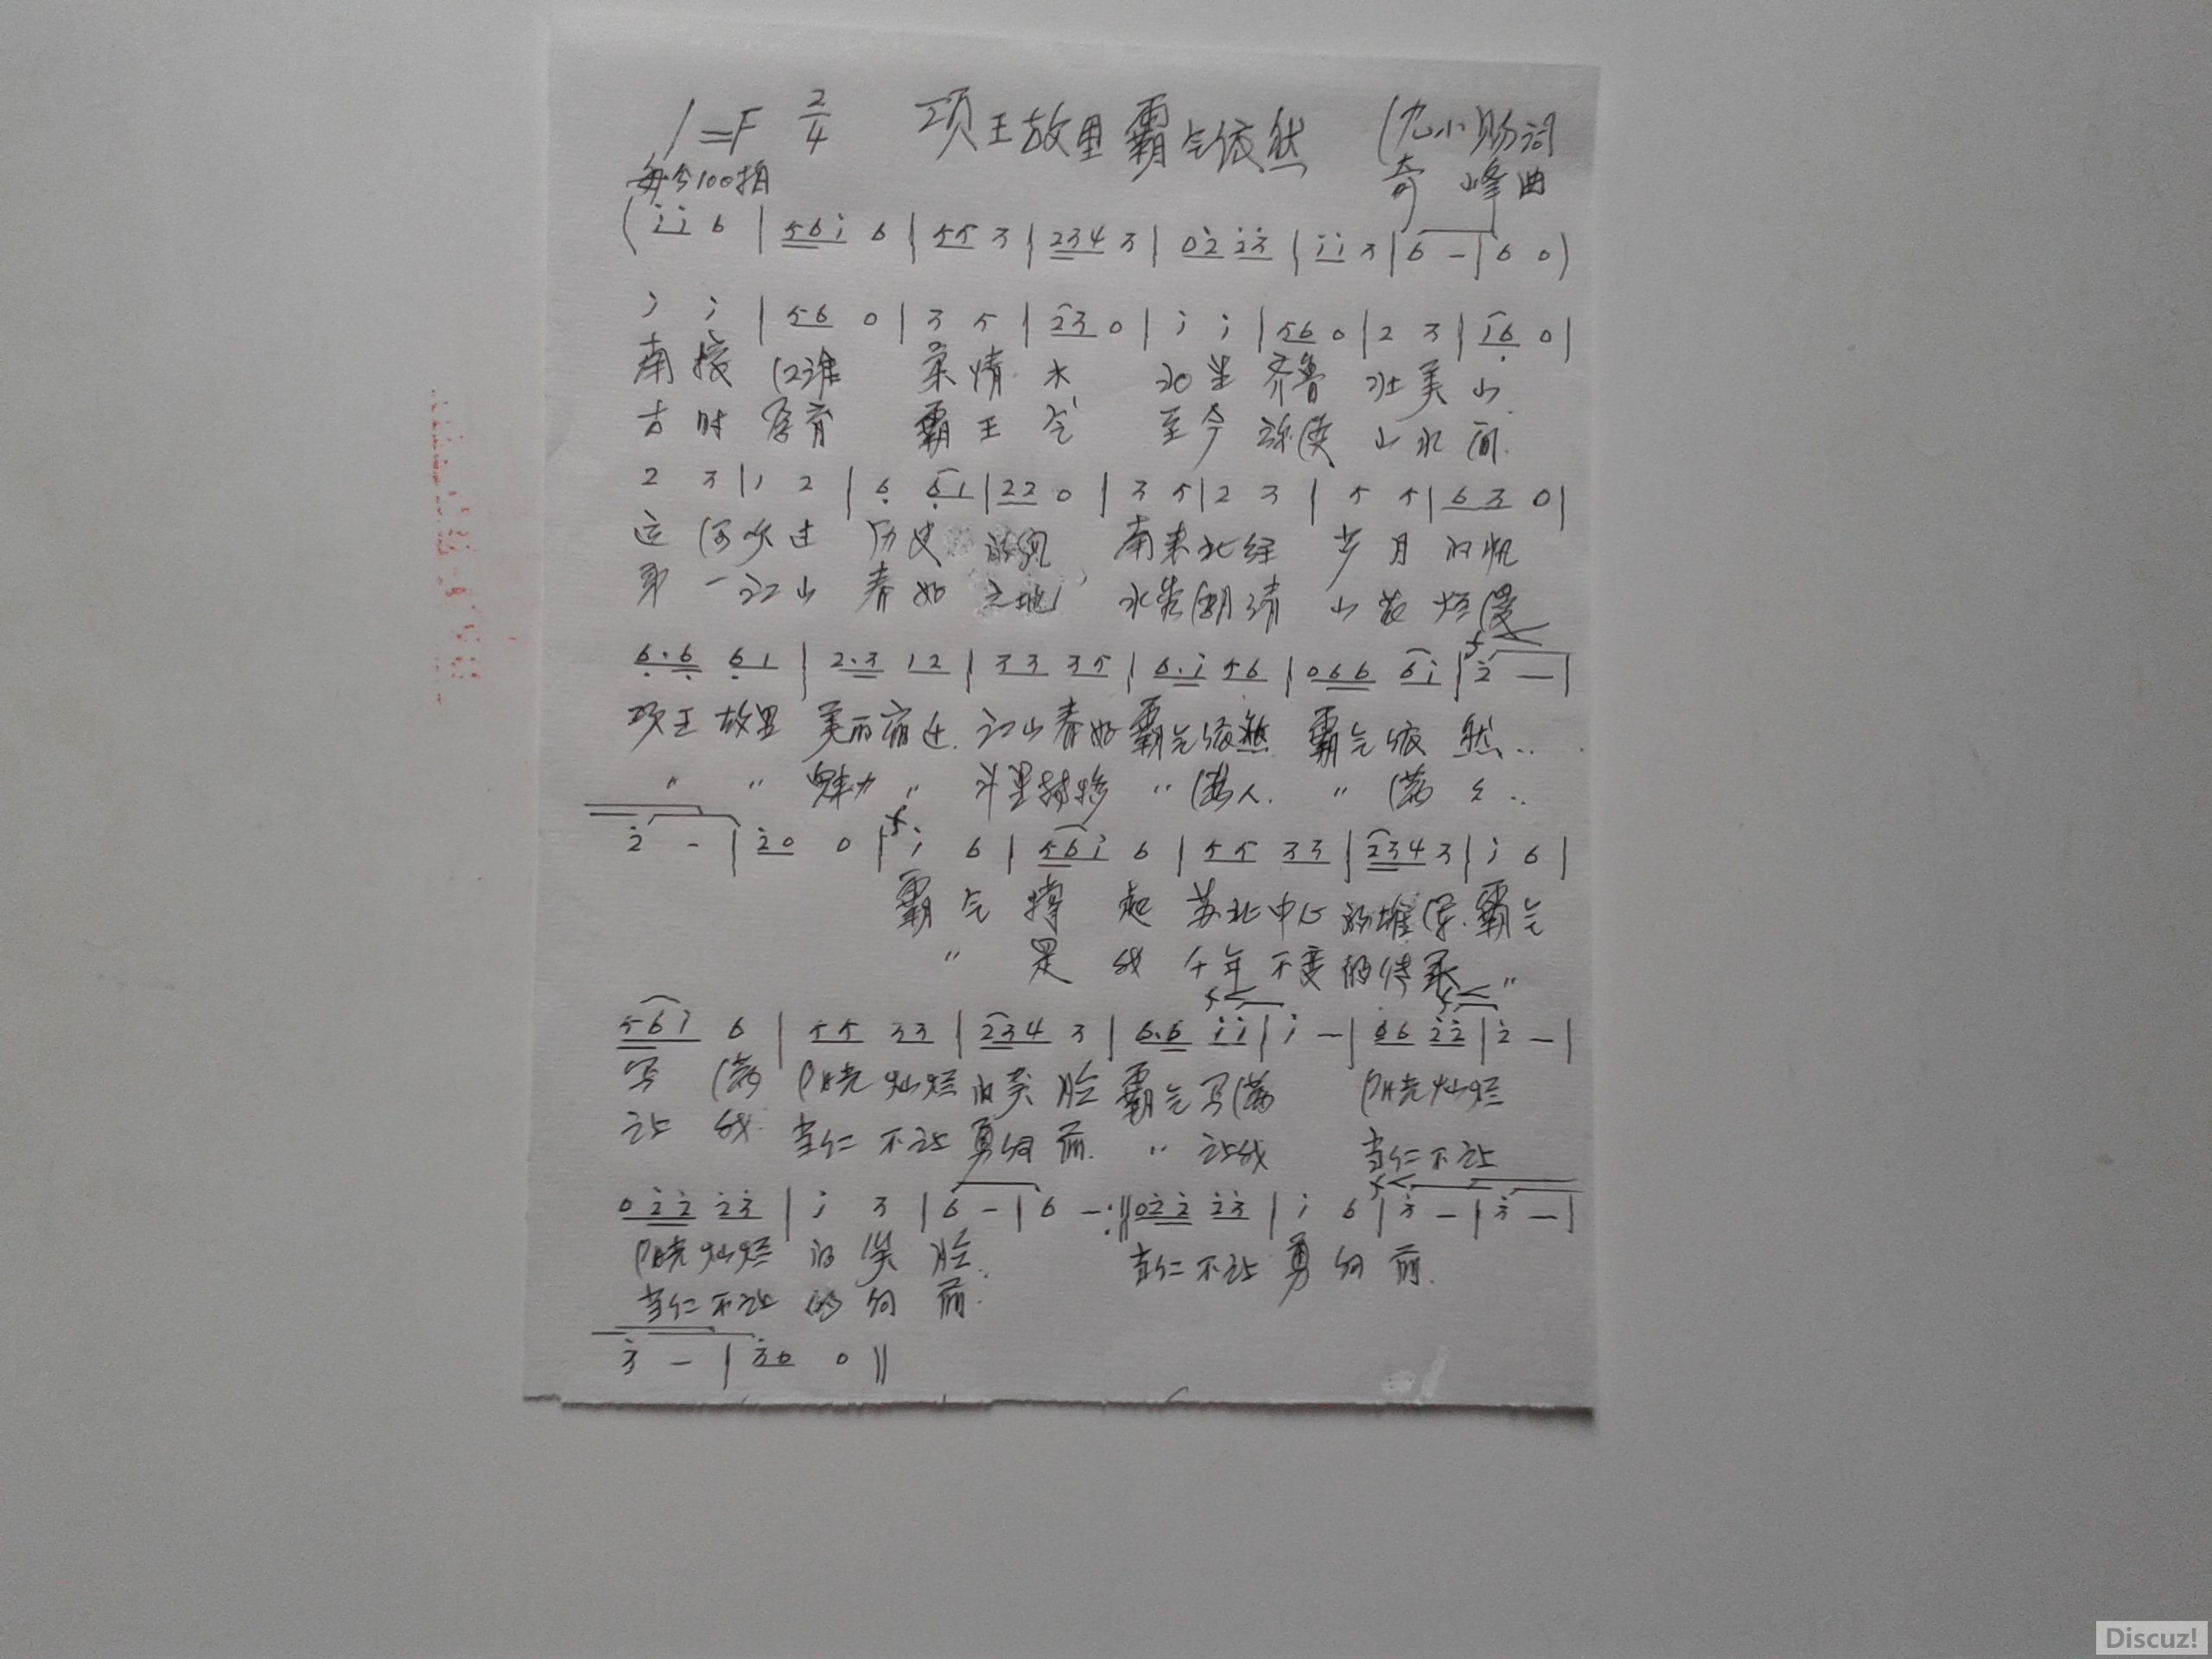 1=F 2/4 项王故里霸气依然 (九小旸词
每分100拍 奇峰曲
(i̇ i̇ 6 | 5 6 i̇ 6 | 5 5 3 | 2 3 4 3 | 0 2̇ 2̇ 3̇ | i̇ i̇ 3 | 6 - | 6 0)
i̇ i̇ | 5 6 0 | 3 5 | 2 3 0 | i̇ i̇ | 5 6 0 | 2 3 | 1 6̣ 0 |
南接江淮 柔情水 北望齐鲁 壮美山
古时孕育 霸王气 至今弥漫 山水间.
2 3 | 1 2 | 6̣ 6̣ 1 | 2 2 0 | 3 5 | 2 3 | 5 5 | 6 3 0 |
运河吹过 历史的风 南来北往 岁月的帆
第一江山 春好之地 水秀明清 山花烂漫
6̣ . 6̣ 6̣ 1 | 2 . 3 1 2 | 3 3 3 5 | 6 . i̇ 5 6 | 0 6 6 6 i̇ | f 2̇ — |
项王故里 美丽宿迁. 江山春好 霸气依然 霸气依然..
〃 〃 魅力 〃 斗星转移 〃 满人. 〃 满 ..
2̇ - | 2̇ 0 0 | f i̇ 6 | 5 6 i̇ 6 | 5 5 3 3 | 2 3 4 3 | i̇ 6 |
霸气撑起 苏北中心的雄浑. 霸气
〃 是我 千年不变的传承 〃
5 6 i̇ 6 | 5 5 3 3 | 2 3 4 3 | 6 . 6 i̇ i̇ | i̇ - | 6 6 2̇ 2̇ | 2̇ - |
写满 阳光灿烂的笑脸 霸气写满 阳光灿烂
让我 当仁不让勇向前. 〃 让我 当仁不让
0 2̇ 2̇ 2̇ 3̇ | i̇ 3 | 6 - | 6 - :|| 0 2̇ 2̇ 2̇ 3̇ | i̇ 6 | f 3̇ - | 3̇ - |
阳光灿烂的笑脸.. 当仁不让勇向前.
当仁不让的向前.
3̇ - | 3̇ 0 0 ||
Discuz!